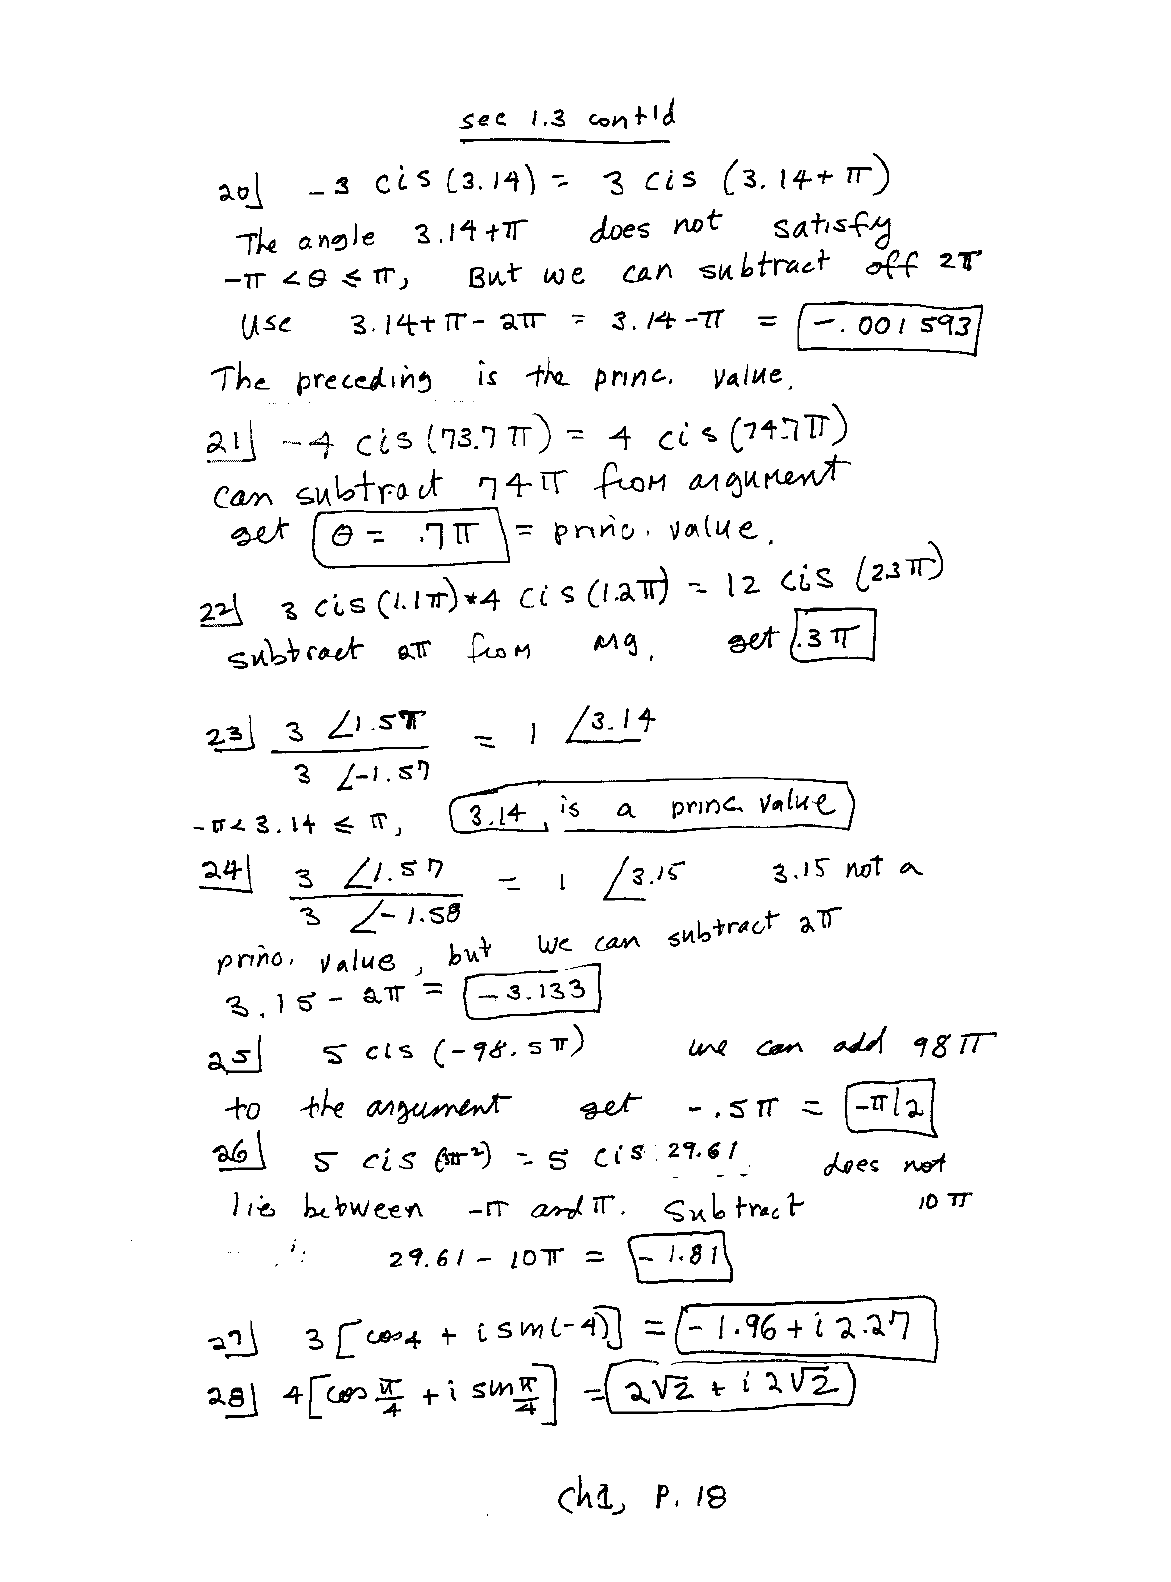 sec 1.3 cont'd
20] -3 cis (3.14) = 3 cis (3.14+π)
The angle 3.14+π does not satisfy
-π < θ ≤ π, But we can subtract off 2π
Use 3.14+π-2π = 3.14-π = -.001593
The preceding is the princ. value.
21] -4 cis (73.7π) = 4 cis (74.7π)
can subtract 74π from argument
get θ = .7π = princ. value.
22] 3 cis (1.1π)*4 cis (1.2π) = 12 cis (2.3π)
subtract 2π from arg. get .3π
23] 3 ∠1.57 / 3 ∠-1.57 = 1 ∠3.14
-π < 3.14 ≤ π, 3.14 is a princ. value
24] 3 ∠1.57 / 3 ∠-1.58 = 1 ∠3.15 3.15 not a
princ. value, but we can subtract 2π
3.15 - 2π = -3.133
25] 5 cis (-98.5π) we can add 98π
to the argument get -.5π = -π/2
26] 5 cis (3π²) = 5 cis 29.61 does not
lie between -π and π. Subtract 10π
29.61 - 10π = -1.81
27] 3 [cos4 + i sin(-4)] = -1.96 + i 2.27
28] 4 [cos π/4 + i sin π/4] = 2√2 + i 2√2
Ch1, P. 18